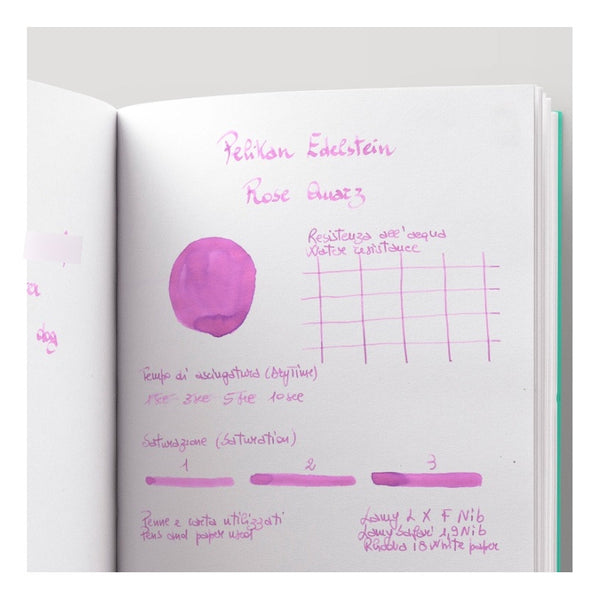 Pelikan Edelstein
Rose Quarz
Resistenza all'acqua
Water resistance
a
dog
Tempo di asciugatura (DryTime)
1sec 3sec 5sec 10sec
Saturazione (Saturation)
1 2 3
Penne e carta utilizzati
Pens and paper used
Lamy LX F Nib
Lamy Safari 1,9 Nib
Rhodia 18 White paper